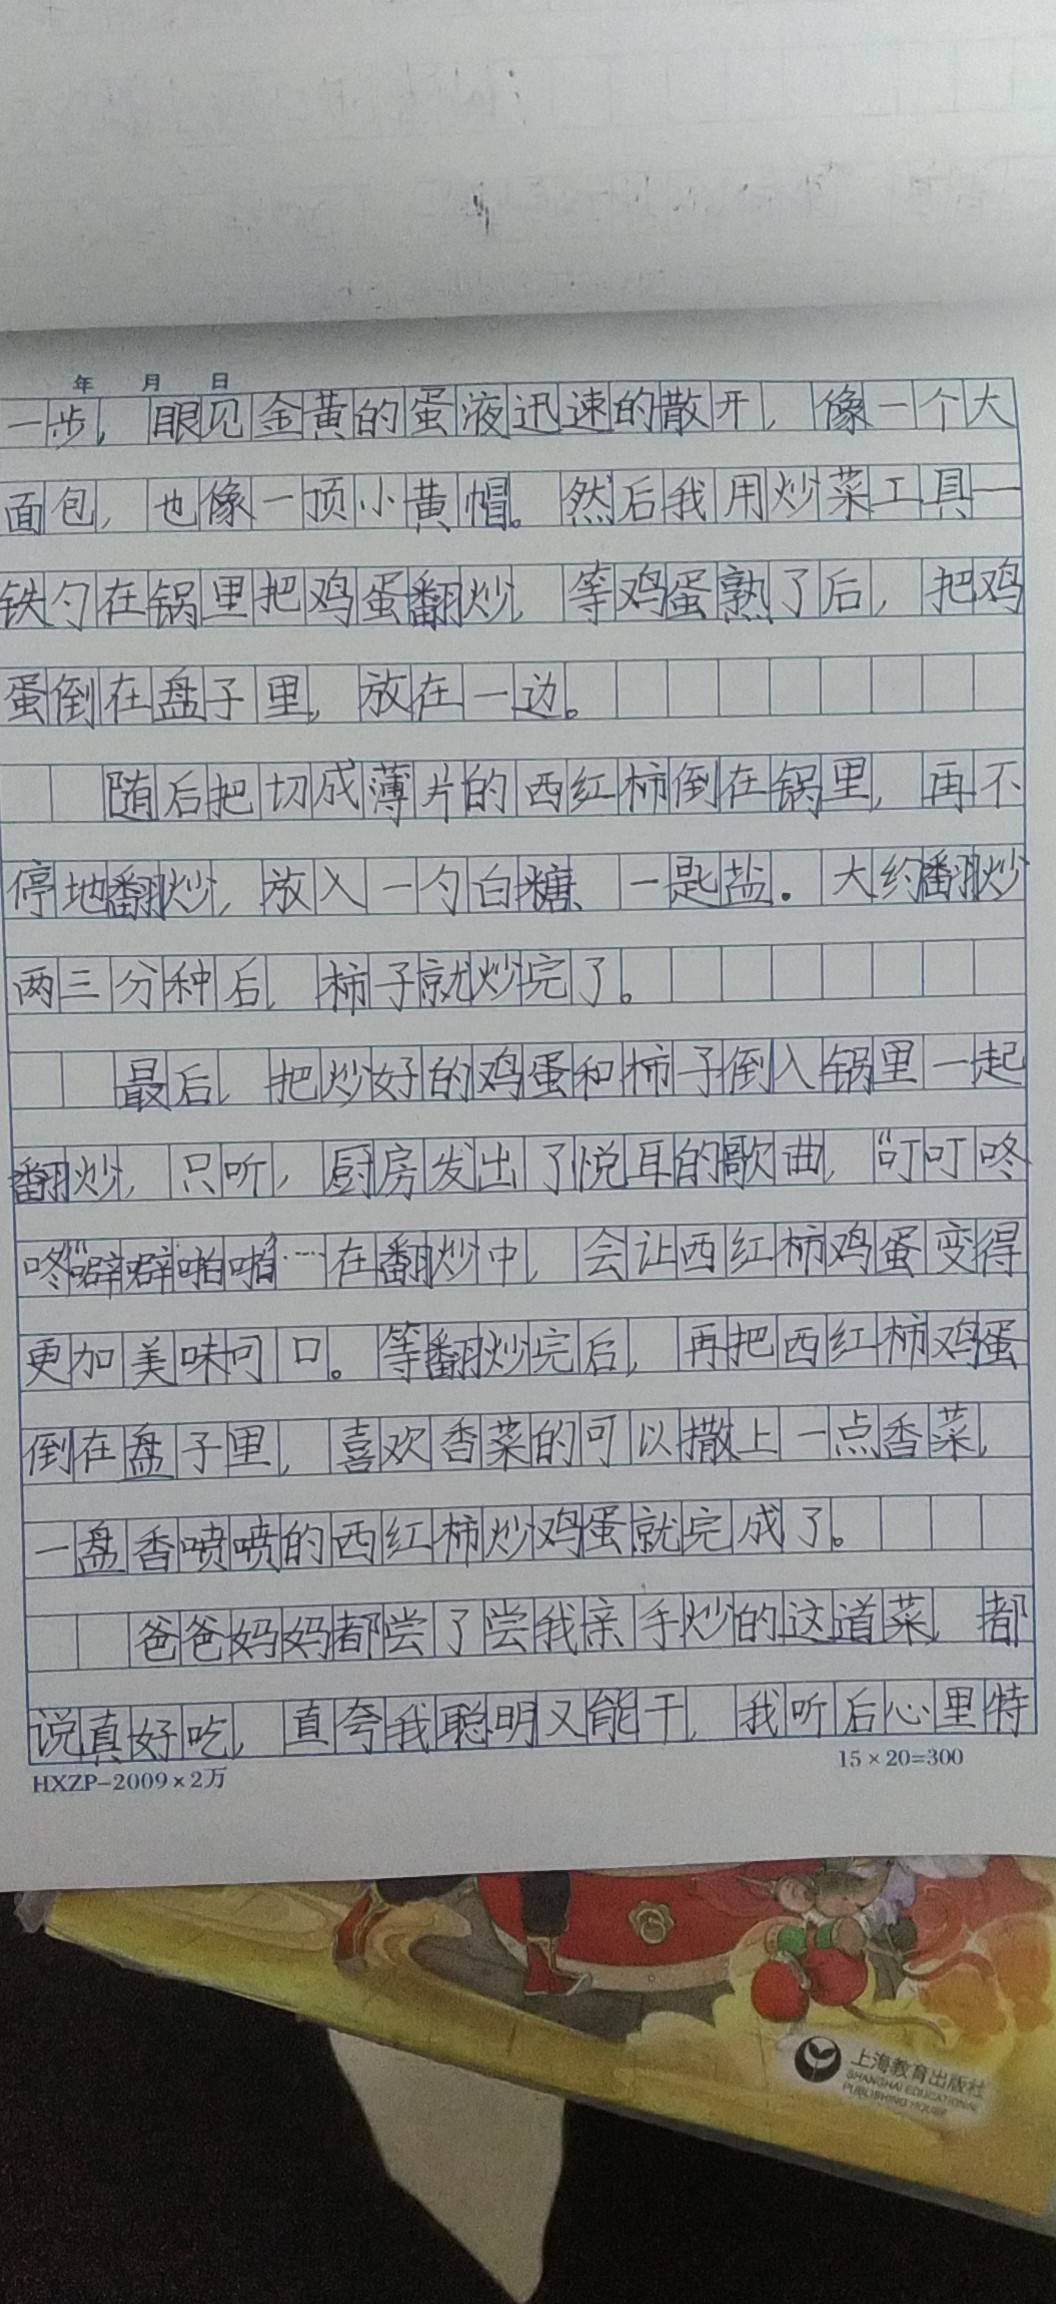 年 月 日
一步，眼见金黄的蛋液迅速的散开，像一个大
面包，也像一顶小黄帽。然后我用炒菜工具一
铁勺在锅里把鸡蛋翻炒，等鸡蛋熟了后，把鸡
蛋倒在盘子里，放在一边。
随后把切成薄片的西红柿倒在锅里，再不
停地翻炒，放入一勺白糖、一匙盐．大约翻炒
两三分种后，柿子就炒完了。
最后，把炒好的鸡蛋和柿子倒入锅里一起
翻炒，只听，厨房发出了悦耳的歌曲，“叮叮咚
咚”“噼噼啪啪…在翻炒中，会让西红柿鸡蛋变得
更加美味可口。等翻炒完后，再把西红柿鸡蛋
倒在盘子里，喜欢香菜的可以撒上一点香菜，
一盘香喷喷的西红柿炒鸡蛋就完成了。
爸爸妈妈都尝了尝我亲手炒的这道菜，都
说真好吃，直夸我聪明又能干，我听后心里特
HXZP-2009×2万
15×20=300
上海教育出版社
SHANGHAI EDUCATIONAL
PUBLISHING HOUSE